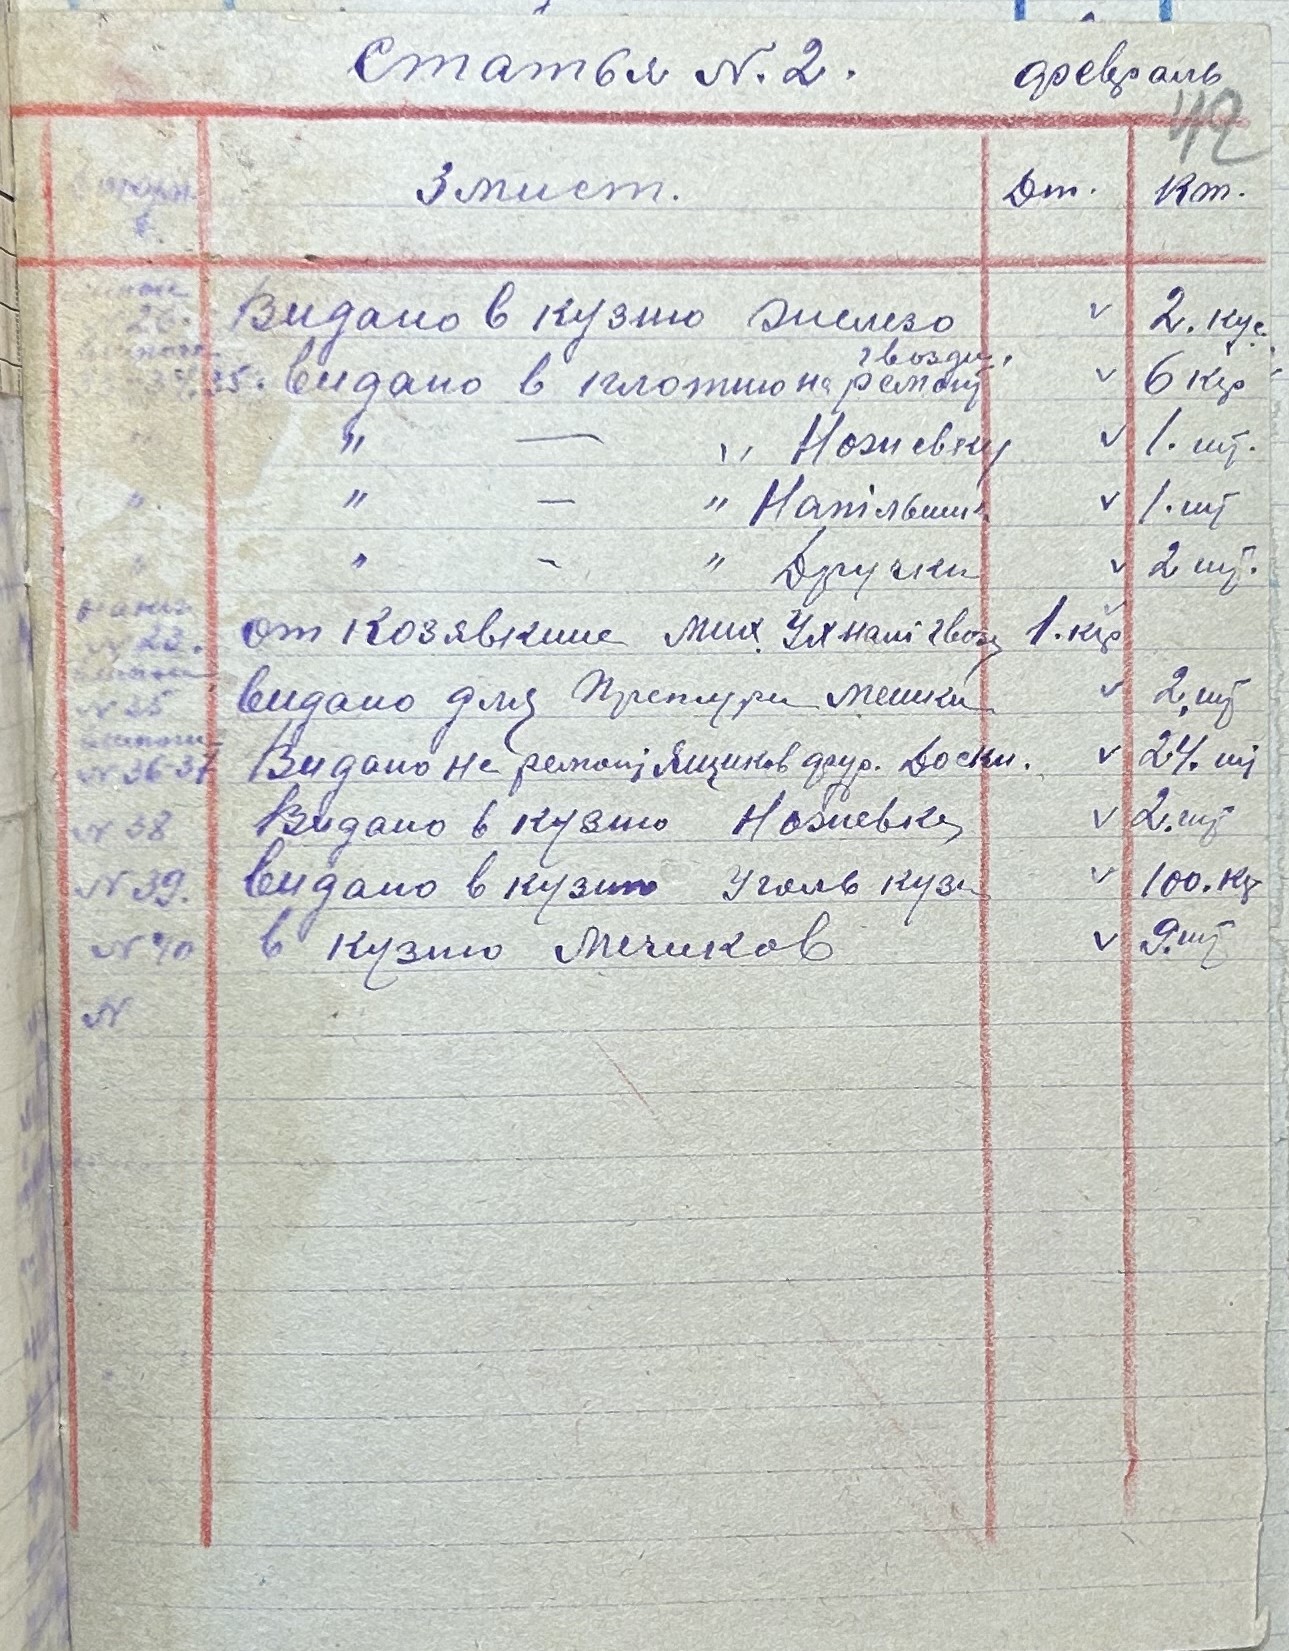 Статья N. 2. февраль
42
Змист. Дт. Кт.
26. Видано в кузню железо v 2. кус.
гвозди.
35. видано в на ремонт v 6 кгр
" " — " Ножевку v 1. шт.
" " — " Напільник v 1. шт
" " - " Дручки v 2 шт.
N 22. от Козявкине Мих. Ухналі гвозд 1. кгр
N 25 видано для мешки v 2, шт
N 36-37 Видано на ремонт Ящиков Доски. v 24. шт
N 38 Видано в кузню Ножевка v 2. шт
N 39. видано в кузню Уголь кузн v 100. кг
N 40 в кузню мечиков v 9. шт
N